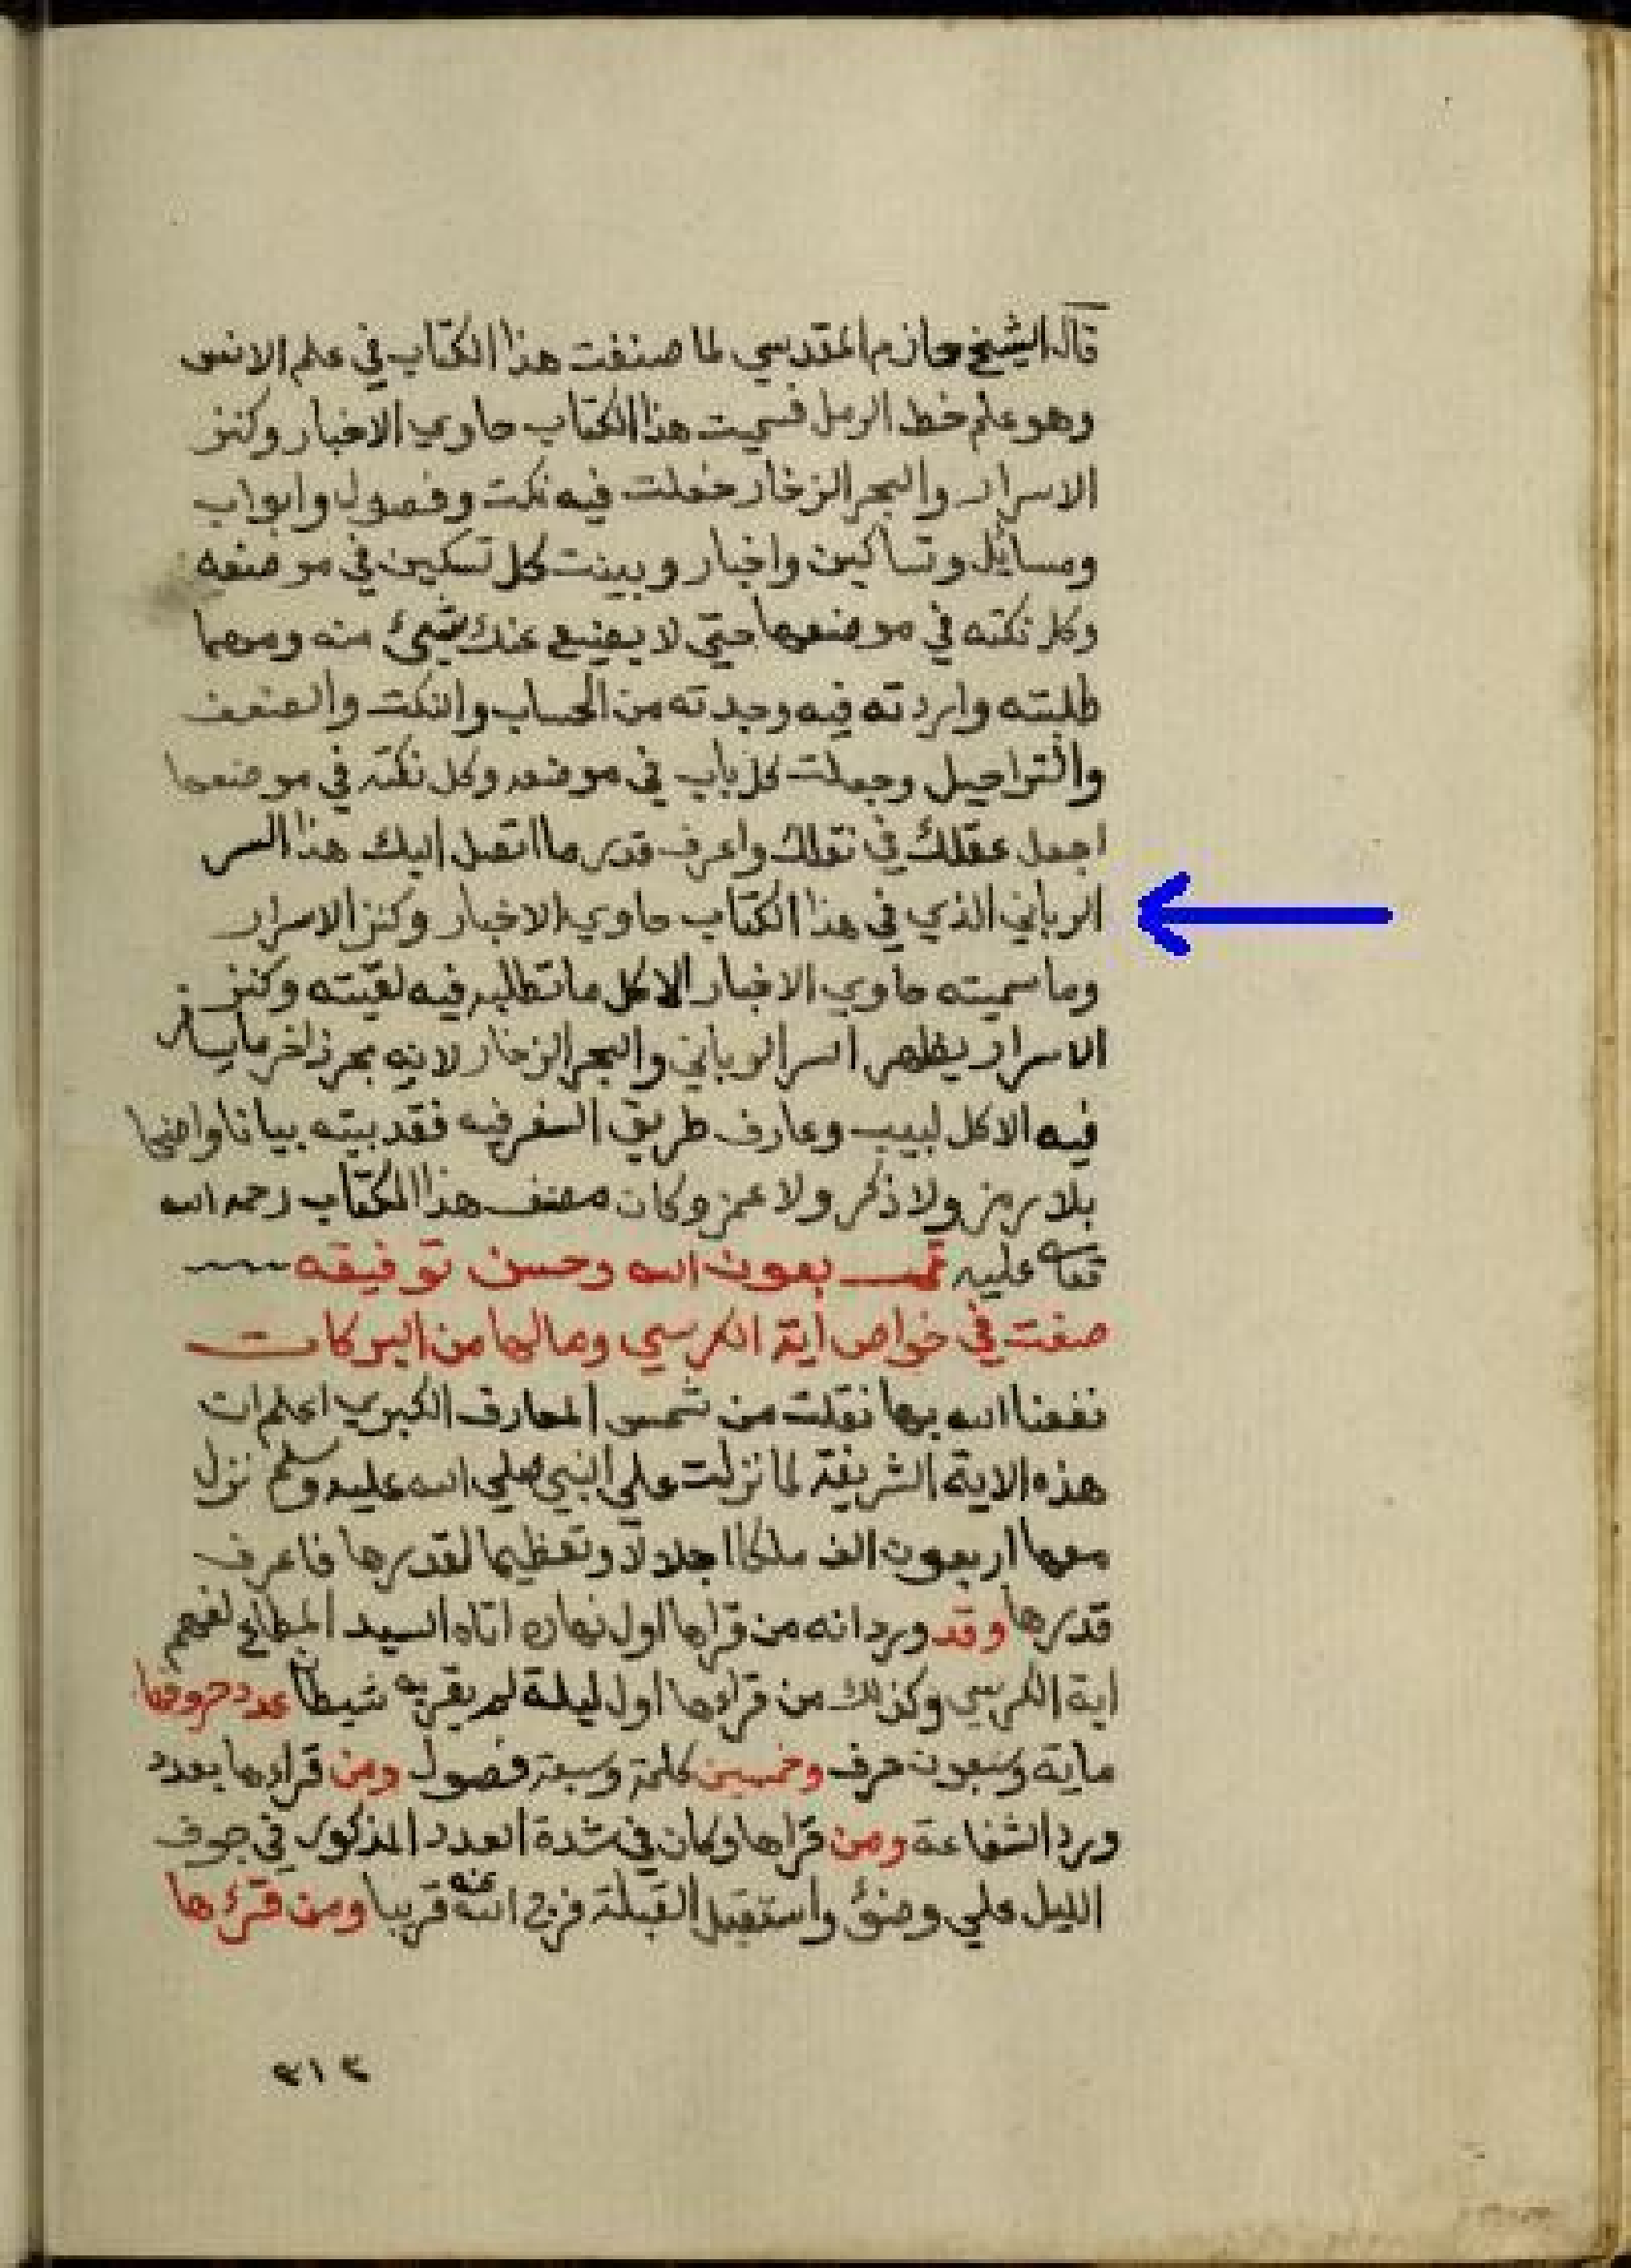 قال الشيخ حازم المقدسي لما صنفت هذا الكتاب في علم الانس
وهو علم خط الرمل فسميت هذا الكتاب حاوي الاخبار وكنز
الاسرار والبحر الزخار فجعلت فيه نكت وفصول وابواب
ومسائل وتساكين واخبار وبينت كل تسكين في موضعه
وكل نكته في موضعها حتي لا يضيع عنك شيئ منه ومهما
طلبته واردته فيه وجدته من الحساب والنكت والضعف
والتراحيل وجعلت كل باب في موضعه وكل نكته في موضعها
اجعل عقلك في نقلك واعرف قدر ما اتصل اليك هذا السر
الرباني الذي في هذا الكتاب حاوي الاخبار وكنز الاسرار
وما سميته حاوي الاخبار الا كل ما تطلبه فيه لقيته وكنز
الاسرار يظهر اسر الرباني والبحر الزخار لانه بحر زاخر ما يسافر
فيه الا كل لبيب وعارف طريق السفر فيه فقد بيته بيانا واضحا
بلا رمز ولا ذكر ولا غمز وكان مصنف هذا الكتاب رحمه الله
تعالى عليه تمت بعون الله وحسن توفيقه
صفت في خواص اية الكرسي وما لها من البركات
نفعنا الله بها نقلت من شمس المعارف الكبري اعلم ان
هذه الاية الشريفة لما نزلت علي النبي صلي الله عليه وسلم نزل
معها اربعون الف ملكا اجلالا وتعظيما لقدرها فاعرف
قدرها وقد ورد انه من قراها اول نهاره اتاه السيد المطاع لفهم
اية الكرسي وكذلك من قراءها اول ليلة لم يقربه شيطان عدد حروفها
ماية وسبعون حرف وخمسين كلمة وسبعة فصول ومن قراءها بعدد
ورد الشفاعة ومن قراها وكان في شدة العدد المذكور في جوف
الليل علي وضؤ واستقبل القبلة فرج الله عنه قريبا ومن قرءها
٣١٣